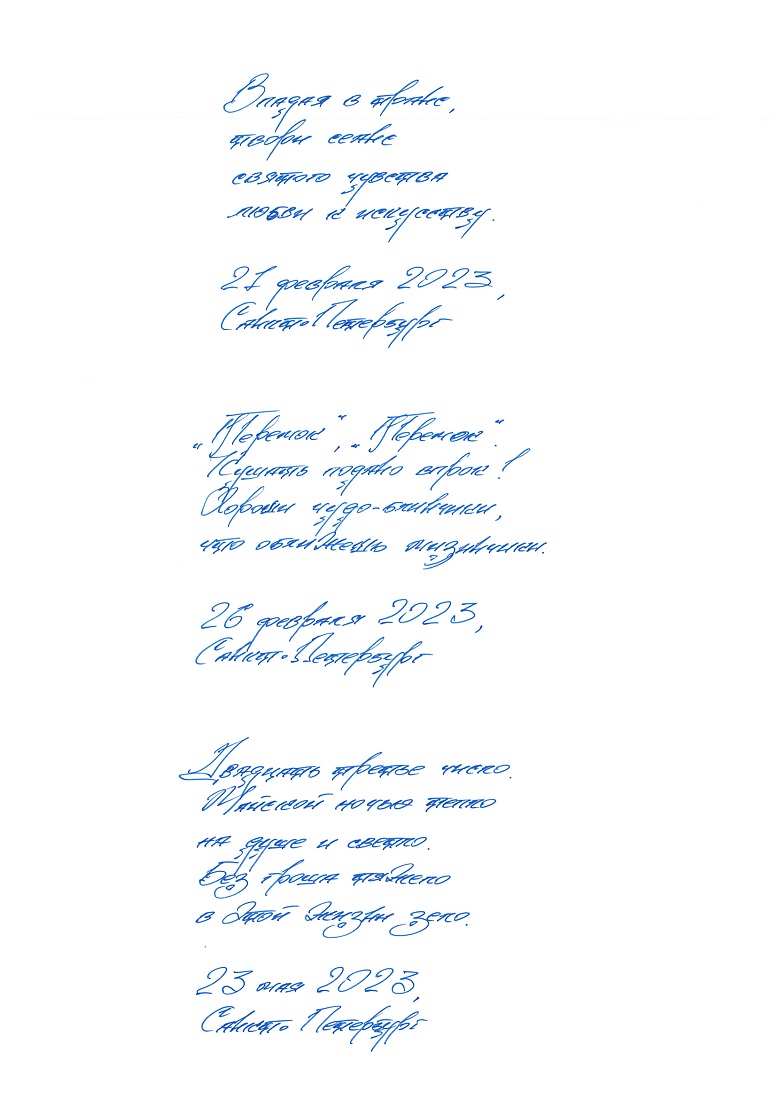 Впадая в транс,
твори сеанс
святого чувства
любви к искусству.
21 февраля 2023,
Санкт-Петербург
„Теремок“, „Теремок“.
Кушать подано впрок!
Хороши чудо-блинчики,
что оближешь мизинчики.
26 февраля 2023,
Санкт-Петербург
Двадцать третье число.
Майской ночью тепло
на душе и светло.
Без гроша тяжело
в этой жизни зело.
23 мая 2023,
Санкт-Петербург